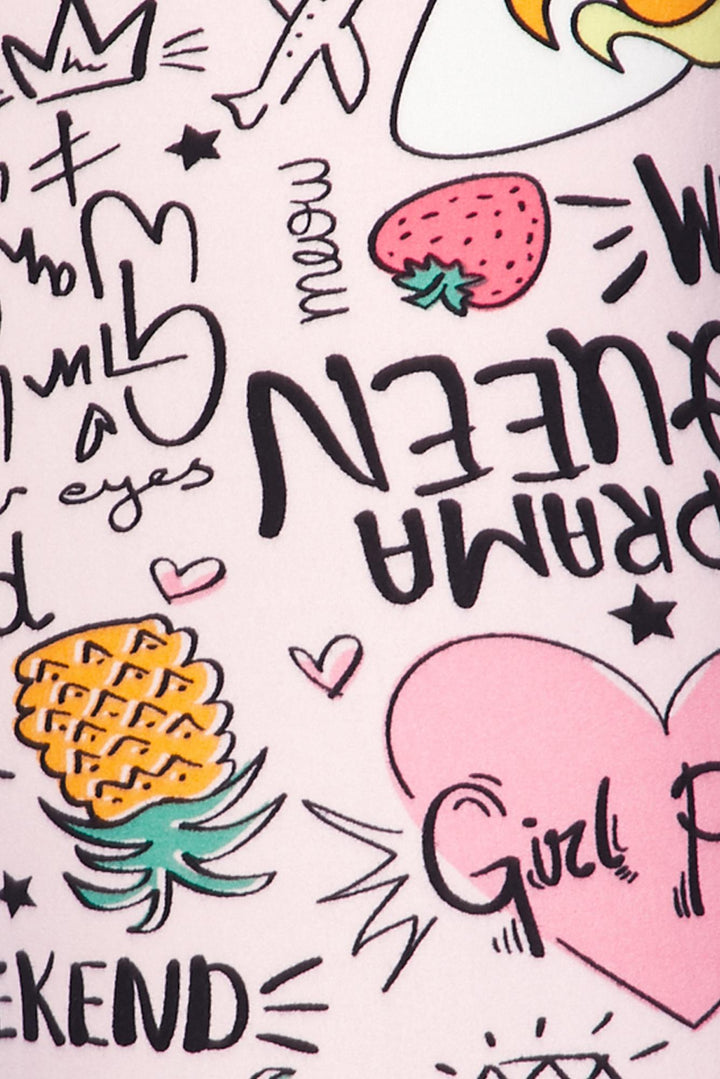 meow
QUEEN
DRAMA
Girl
a
eyes
Girl P
EKEND